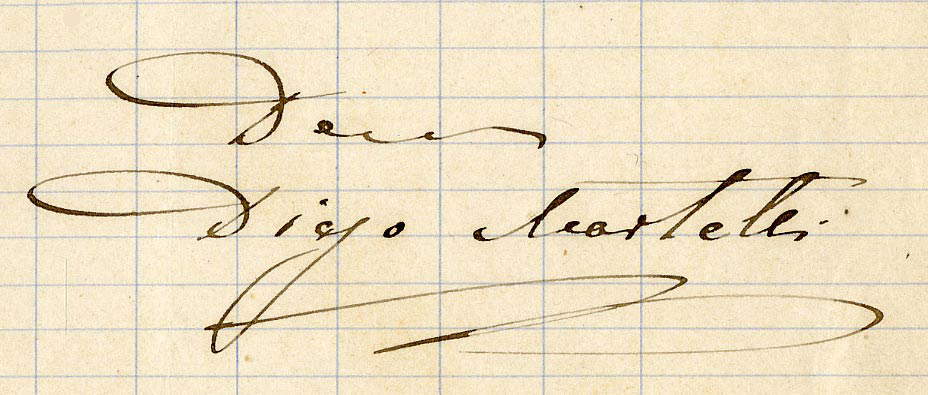 Diego Martelli